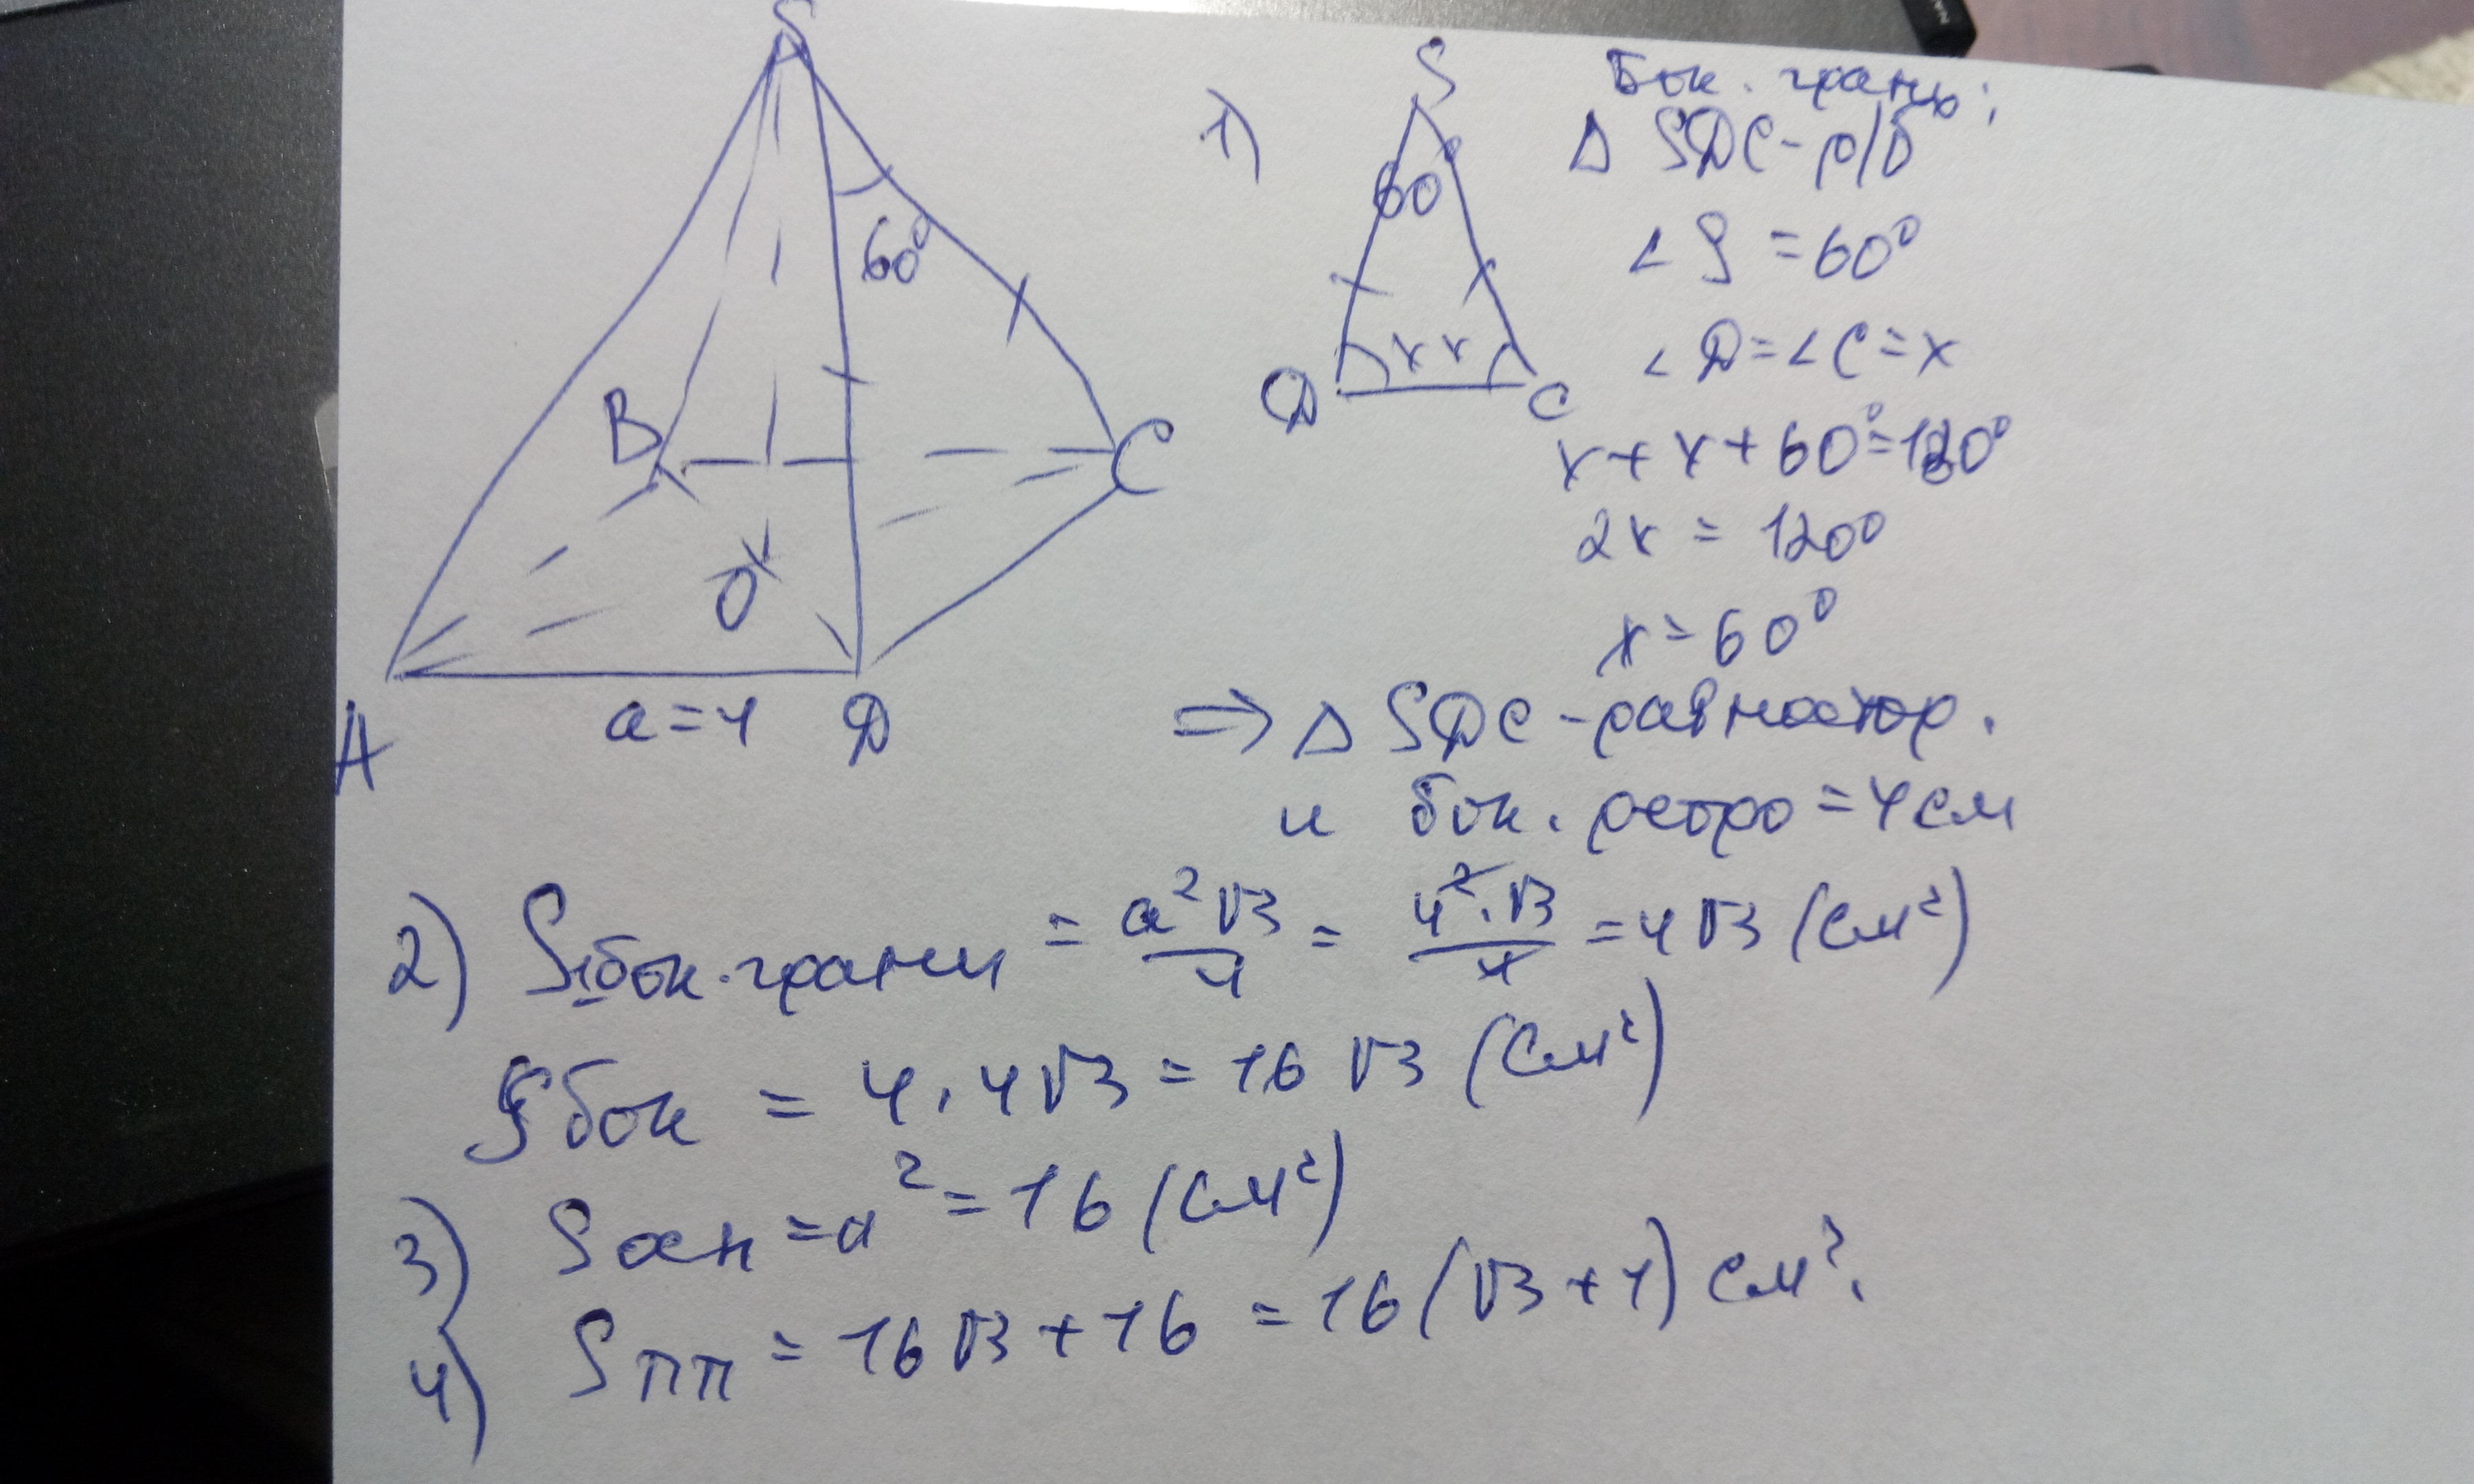 S
60°
B
C
O
A
a=4
D
1)
S
60°
x x
D
C
Бок. грань:
Δ SDC - р/б
∠ S = 60°
∠ D = ∠ C = x
x + x + 60° = 180°
2x = 120°
x = 60°
⇒ Δ SDC - равностор.
и бок. ребро = 4 см
2) S1бок.грани = a²√3/4 = 4²·√3/4 = 4√3 (см²)
Sбок = 4·4√3 = 16√3 (см²)
3) Sосн = a² = 16 (см²)
4) Sпп = 16√3 + 16 = 16(√3 + 1) см².